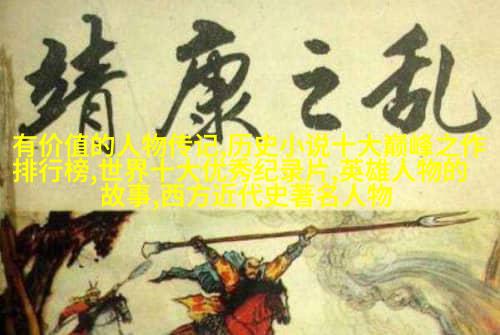 靖康之乱
有价值的人物传记,历史小说十大巅峰之作
排行榜,世界十大优秀纪录片,英雄人物的
故事,西方近代史著名人物